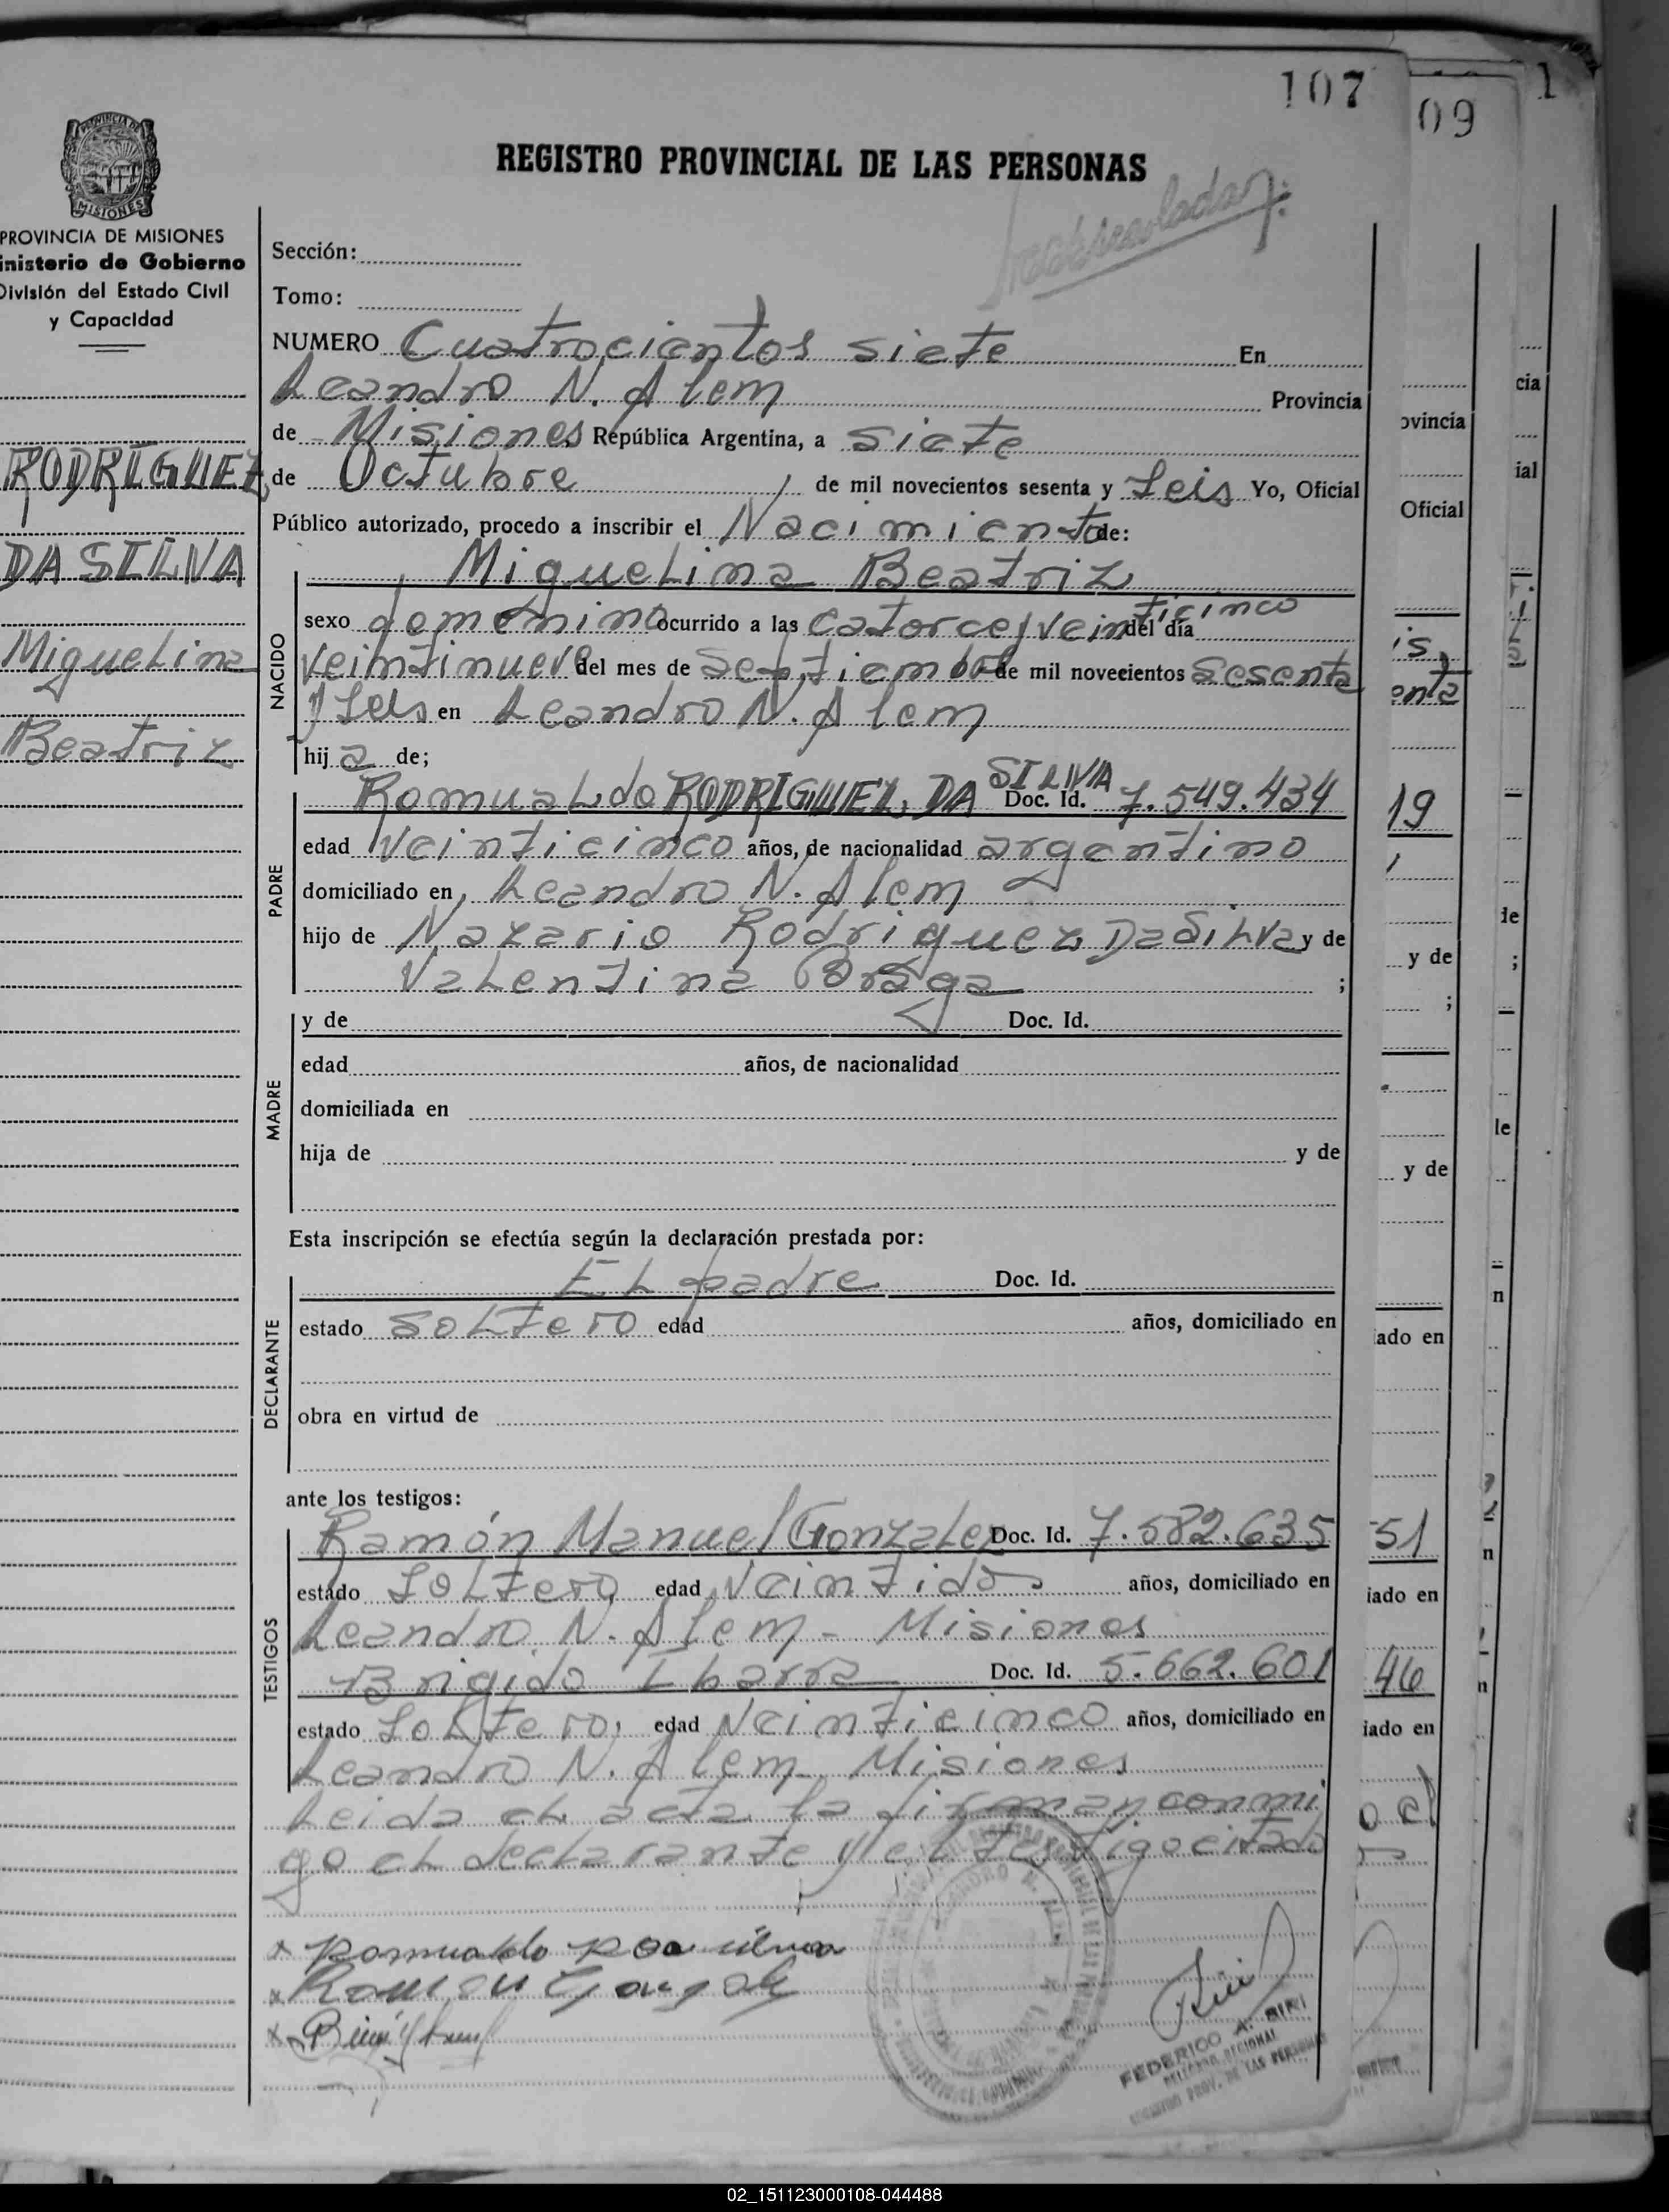 107
09
1
REGISTRO PROVINCIAL DE LAS PERSONAS
PROVINCIA DE MISIONES
inisterio de Gobierno
División del Estado Civil
y Capacidad
RODRIGUEZ
DA SILVA
MigueLina
Beatriz
Sección:
Tomo:
NUMERO Cuatrocientos siete En
Leandro N. Alem Provincia
de Misiones República Argentina, a siete
de Octubre de mil novecientos sesenta y Seis Yo, Oficial
Público autorizado, procedo a inscribir el Nacimiento de:
MigueLina Beatriz
NACIDO
sexo femenino ocurrido a las catorce y veinticinco del día
veintinueve del mes de septiembre de mil novecientos sesenta
y seis en Leandro N. Alem
hija de;
PADRE
RomuaLdo RODRIGUEZ, DA SILVA Doc. Id. 7.549.434
edad veinticinco años, de nacionalidad argentino
domiciliado en, Leandro N. Alem
hijo de Nazario Rodriguez DaSiLva y de
VaLentina Braga ;
MADRE
y de Doc. Id.
edad años, de nacionalidad
domiciliada en
hija de y de
Esta inscripción se efectúa según la declaración prestada por:
DECLARANTE
EL padre Doc. Id.
estado soLtero edad años, domiciliado en
obra en virtud de
ante los testigos:
TESTIGOS
Ramón Manuel GonzaLez Doc. Id. 7.582.635
estado SoLtero edad Veintidos años, domiciliado en
Leandro N. Alem - Misiones
Brigido Ibarra Doc. Id. 5.662.601
estado SoLtero, edad Veinticinco años, domiciliado en
Leandro N. Alem - Misiones
Leida eL acta la firman conmi
go eL decLarante y el testigo citado
FEDERICO A. BIRI
DELEGADO REGIONAL
REGISTRO PROV. DE LAS PERSONAS
02_151123000108-044488